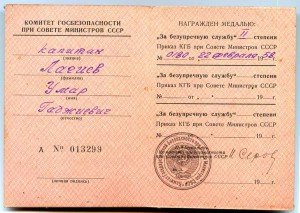 КОМИТЕТ ГОСБЕЗОПАСНОСТИ
ПРИ СОВЕТЕ МИНИСТРОВ СССР
капитан
Лачиев
(фамилия)
Умар
(имя)
Гаджиевич
(отчество)
А № 013299
(личная подпись)
НАГРАЖДЕН МЕДАЛЬЮ:
„За безупречную службу“ II степени
Приказ КГБ при Совете Министров СССР
№ 0180 „22 февраля 1958 г.
„За безупречную службу“ степени
Приказ КГБ при Совете Министров СССР
№ 19 г.
„За безупречную службу“ степени
Приказ КГБ при Совете Министров СССР
№ 19 г.
И Серов